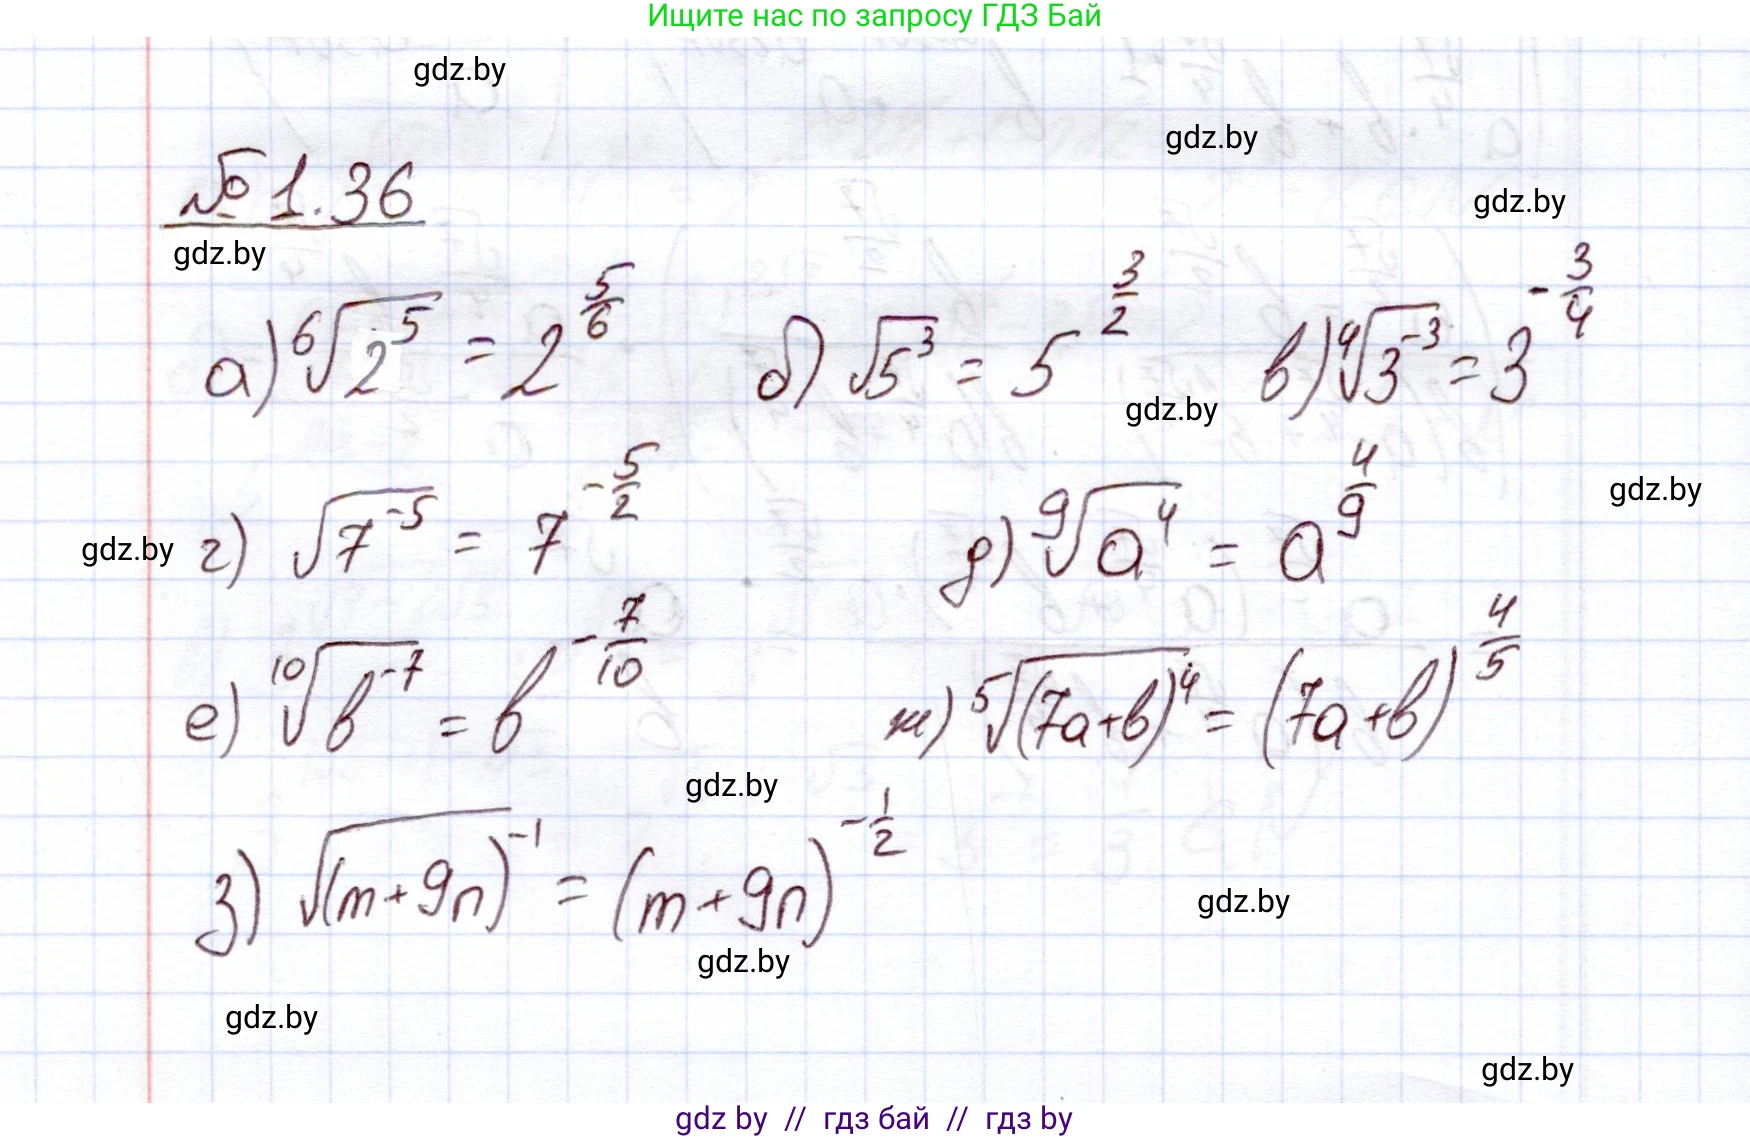 Ищите нас по запросу ГДЗ Бай
gdz.by
gdz.by
№ 1.36
gdz.by
gdz.by
а) ⁶√(2⁵) = 2^(5/6) б) √(5³) = 5^(3/2) в) ⁴√(3⁻³) = 3^(-3/4)
gdz.by
г) √(7⁻⁵) = 7^(-5/2) д) ⁹√(a⁴) = a^(4/9)
gdz.by
gdz.by
е) ¹⁰√(b⁻⁷) = b^(-7/10) ж) ⁵√((7a+b)⁴) = (7a+b)^(4/5)
gdz.by
з) √((m+9n)⁻¹) = (m+9n)^(-1/2)
gdz.by
gdz.by
gdz.by
gdz.by
gdz by // гдз бай // гдз by